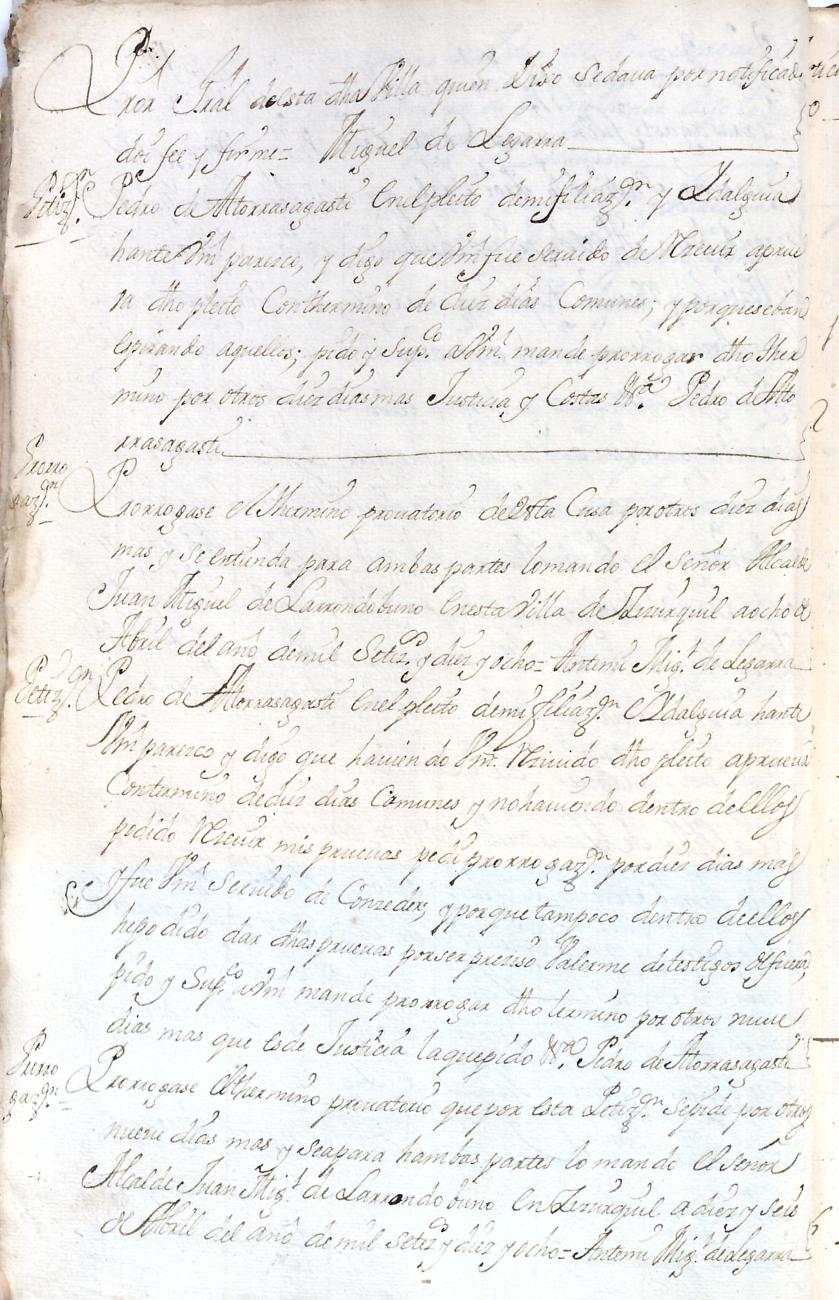 Pror Gral de esta dha Villa quien Dixo sedava por notificado
doi fee y firme= Miguel de Legarra
Petizⁿ. Pedro de Atorrasagasti enel pleito demi filiazⁿ. y Ydalguia
hante Vm̃ parezco, y digo que Vm̃ fue servido de Recivir aprue
va dho pleito Conthermino de diez dias Comunes; y porque seban
espirando aquellos; pido y Supco. a Vm̃. mande prorrogar dho ther
mino por otros diez dias mas Justicia y Costas &ra. Pedro de Atto
rrasagasti
Prorro
gazⁿ. Prorrogase el thermino provatorio de esta Causa por otros diez dias
mas y se entienda para ambas partes lo mando el señor Alcalde
Juan Miguel de Larrondobuno en esta Villa de Zizurquil a ocho de
Abril del año demil Setezos. y diez y ocho= Antemi Migl. de Legarra
Petizⁿ. Pedro de Atorrasagasti enel pleito demi filiazⁿ. e Ydalguia hante
Vm̃ parezco y digo que haviendo Vm̃. Recivido dho pleito aprueva
Contermino de diez dias Comunes y no haviendo dentro de ellos
podido Recivir mis pruevas pedi prorrogazⁿ. por diez dias mas
y fue Vm̃ Servido de Conzeder, y porque tampoco dentro de ellos
he podido dar dhas pruevas por ser preciso Valerme de testigos de fuera,
pido y Supco. a Vm̃ mande prorrogar dho termino por otros nueve
dias mas que es de Justicia la que pido &ra. Pedro de Atorrasagasti
Prorro
gazⁿ. Prorrogase el thermino provatorio que por esta Petizⁿ. se pide por otros
nueve dias mas y sea para hambas partes lo mando el señor
Alcalde Juan Migl. de Larrondobuno en Zizurquil a diez y seis
de Abril del año demil setezos y diez y ocho= Antemi Migl. de Legarra